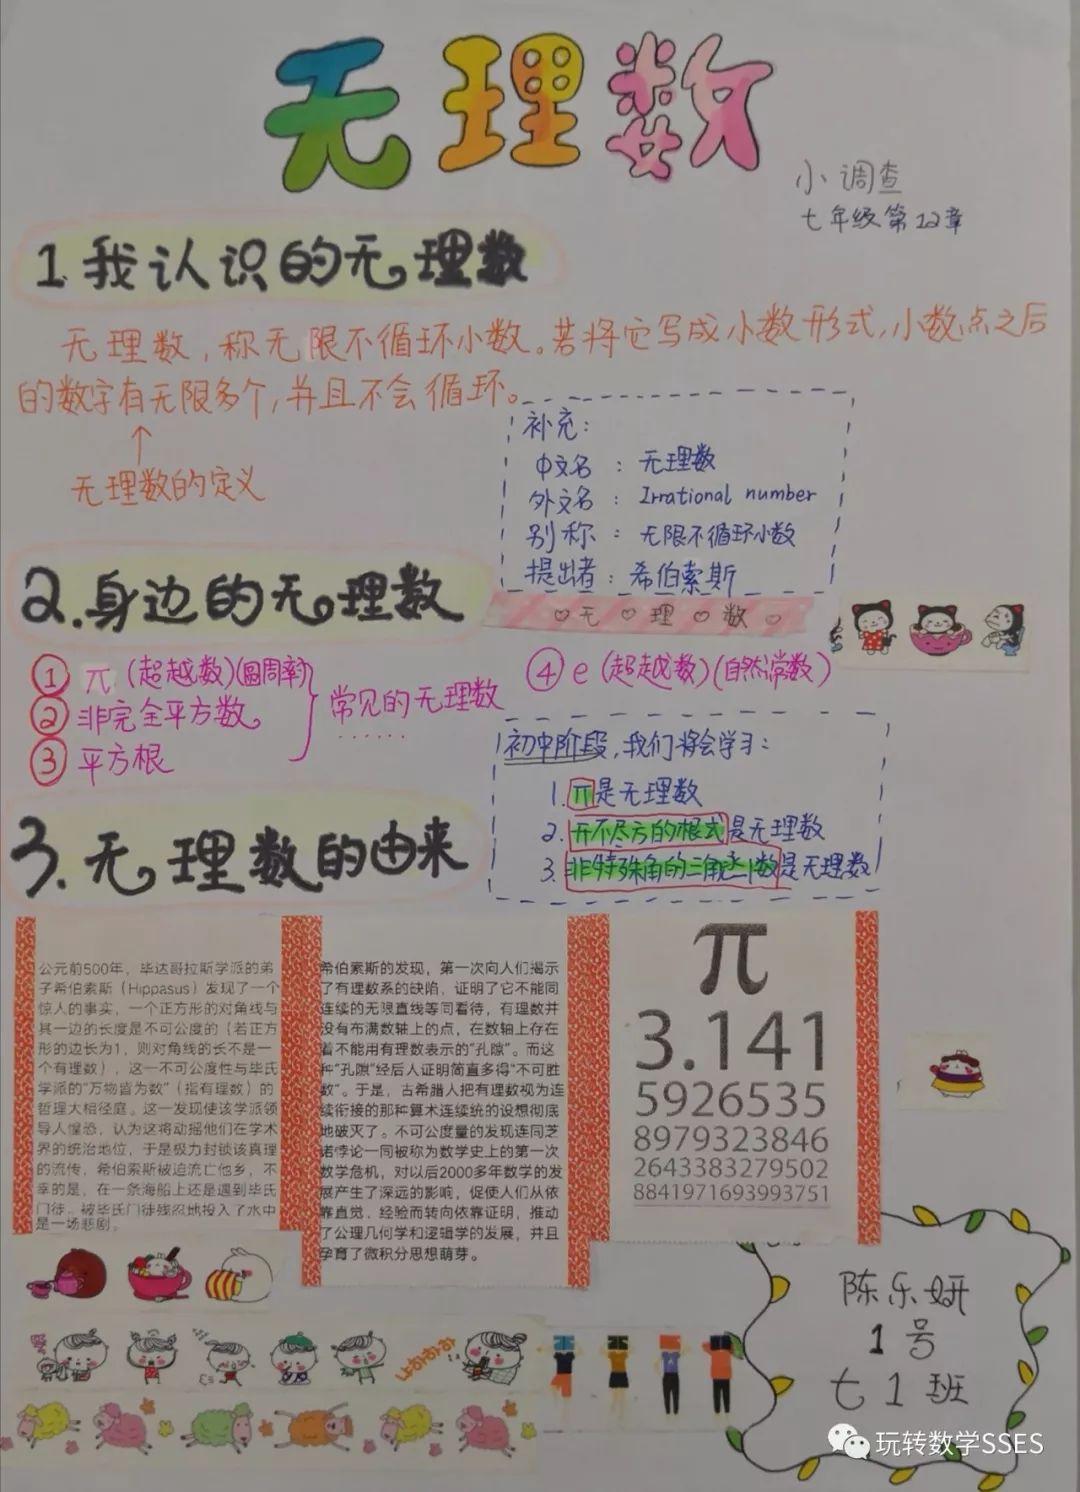 无理数
小调查
七年级第12章
1.我认识的无理数
无理数,称无限不循环小数。若将它写成小数形式,小数点之后
的数字有无限多个,并且不会循环。
↑
无理数的定义
补充:
中文名:无理数
外文名:Irrational number
别称:无限不循环小数
提出者:希伯索斯
♡无♡理♡数♡
2.身边的无理数
① π (超越数)(圆周率)
② 非完全平方数。
③ 平方根
常见的无理数
④ e (超越数)(自然常数)
初中阶段,我们将会学习:
1. π是无理数
2. 开不尽方的根式是无理数
3. 非特殊角的三角函数是无理数
3.无理数的由来
公元前500年,毕达哥拉斯学派的弟
子希伯索斯(Hippasus)发现了一个
惊人的事实,一个正方形的对角线与
其一边的长度是不可公度的(若正方
形的边长为1,则对角线的长不是一
个有理数),这一不可公度性与毕氏
学派的“万物皆为数”(指有理数)的
哲理大相径庭。这一发现使该学派领
导人惶恐,认为这将动摇他们在学术
界的统治地位,于是极力封锁该真理
的流传,希伯索斯被迫流亡他乡,不
幸的是,在一条海船上还是遇到毕氏
门徒。被毕氏门徒残忍地投入了水中
是一场悲剧。
希伯索斯的发现,第一次向人们揭示
了有理数系的缺陷,证明了它不能同
连续的无限直线等同看待,有理数并
没有布满数轴上的点,在数轴上存在
着不能用有理数表示的“孔隙”。而这
种“孔隙”经后人证明简直多得“不可胜
数”。于是,古希腊人把有理数视为连
续衔接的那种算术连续统的设想彻底
地破灭了。不可公度量的发现连同芝
诺悖论一同被称为数学史上的第一次
数学危机,对以后2000多年数学的发
展产生了深远的影响,促使人们从依
靠直觉、经验而转向依靠证明,推动
了公理几何学和逻辑学的发展,并且
孕育了微积分思想萌芽。
π
3.141
5926535
8979323846
2643383279502
8841971693993751
陈乐妍
1号
七1班
玩转数学SSES